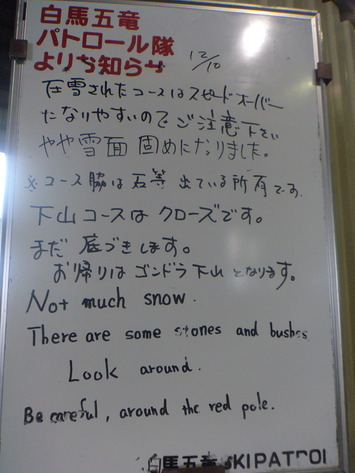 白馬五竜
パトロール隊
よりお知らせ
12/10
圧雪されたコースはスピードオーバー
になりやすいのでご注意下さい
やや雪面 固めになりました。
※コース脇は石等 出ている所有です。
下山コースは クローズです。
まだ 底づきします。
お帰りは ゴンドラ下山 となります。
Not much snow.
There are some stones and bushes
Look around.
Be careful, around the red pole.
白馬五竜 SKIPATROL